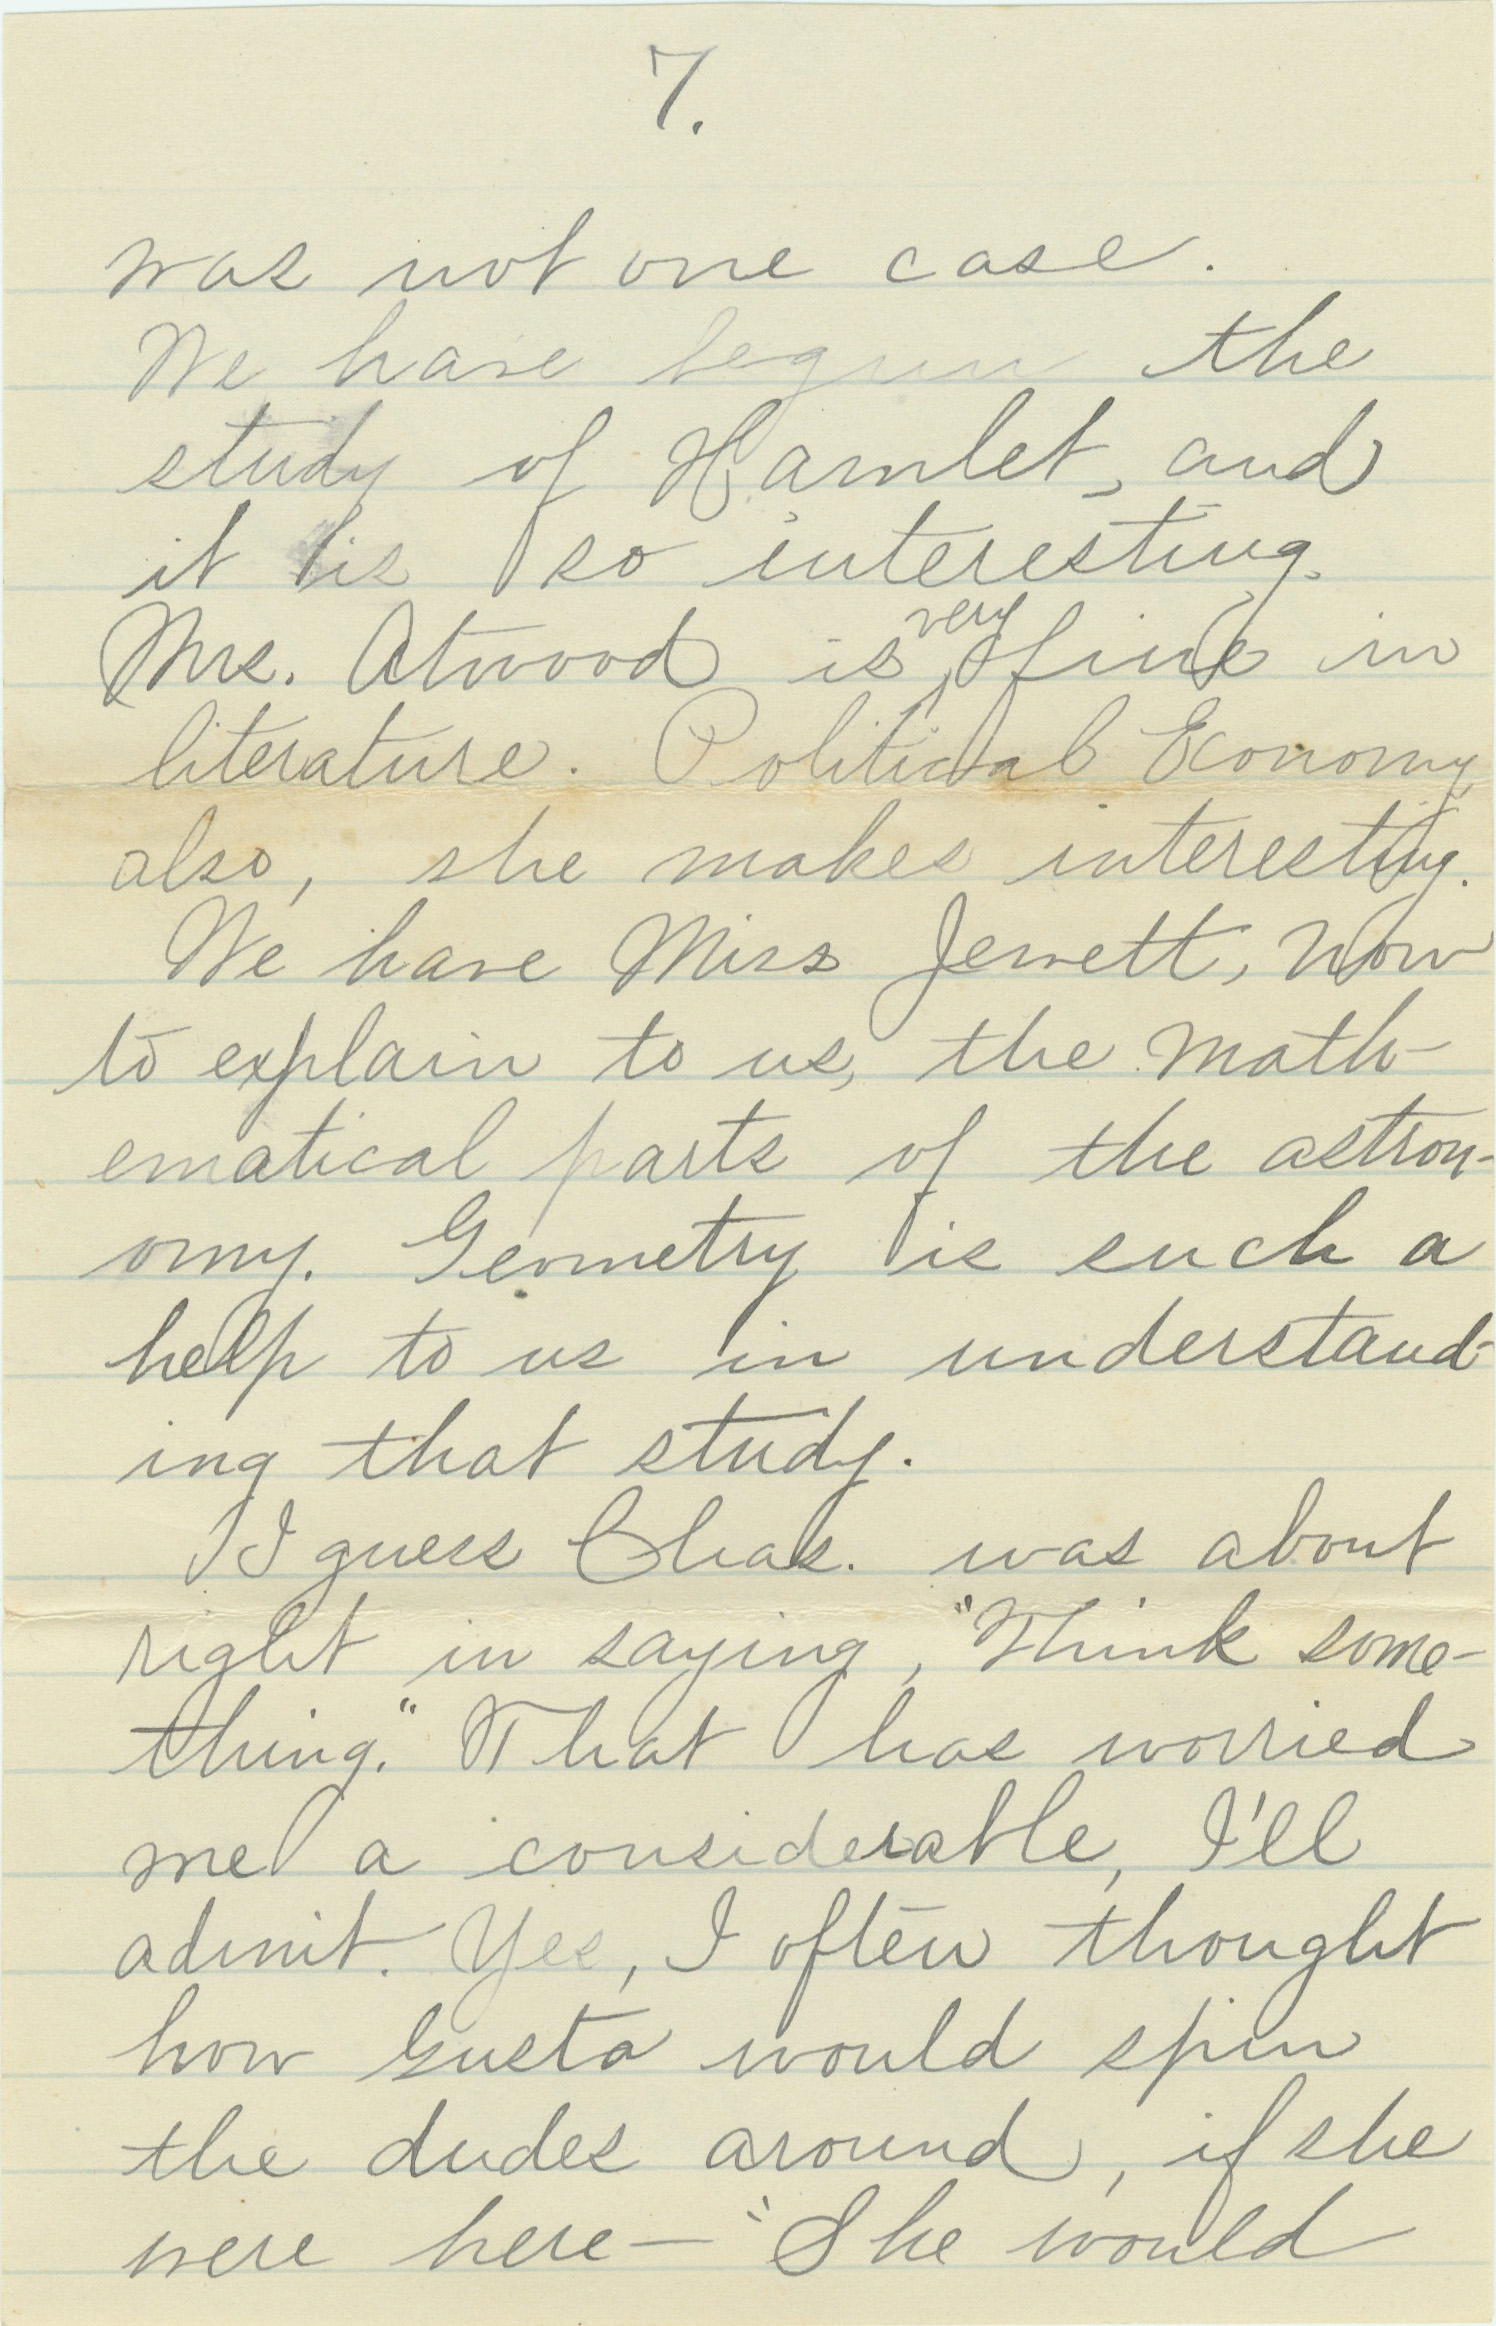 7.
was not one case.
We have begun the
study of Hamlet, and
it is so interesting.
Mrs. Atwood is very fine in
literature. Political Economy
also, she makes interesting.
We have Miss Jewett, now
to explain to us, the math-
ematical parts of the astron-
omy. Geometry is such a
help to us in understand-
ing that study.
I guess Chas. was about
right in saying, "Think some-
thing." That has worried
me a considerable, I'll
admit. Yes, I often thought
how Gusta would spin
the dudes around, if she
were here — "She would